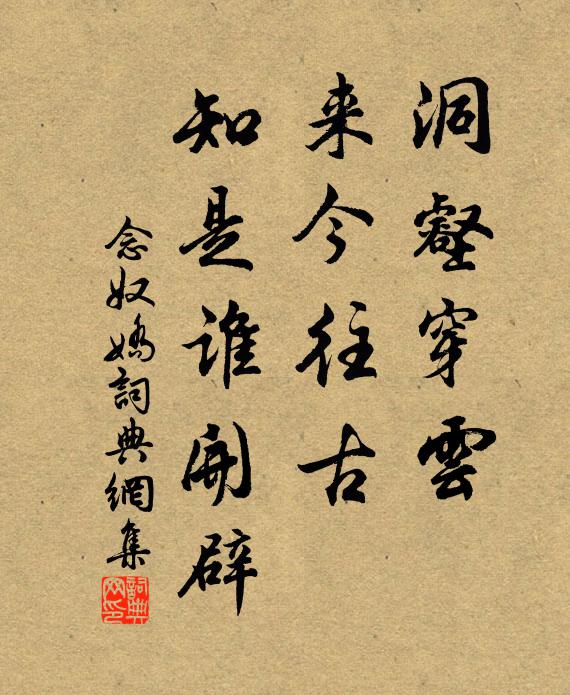 洞壑穿雲
来今往古
知是誰開辟
念奴嬌詞典網集
詞典
网印